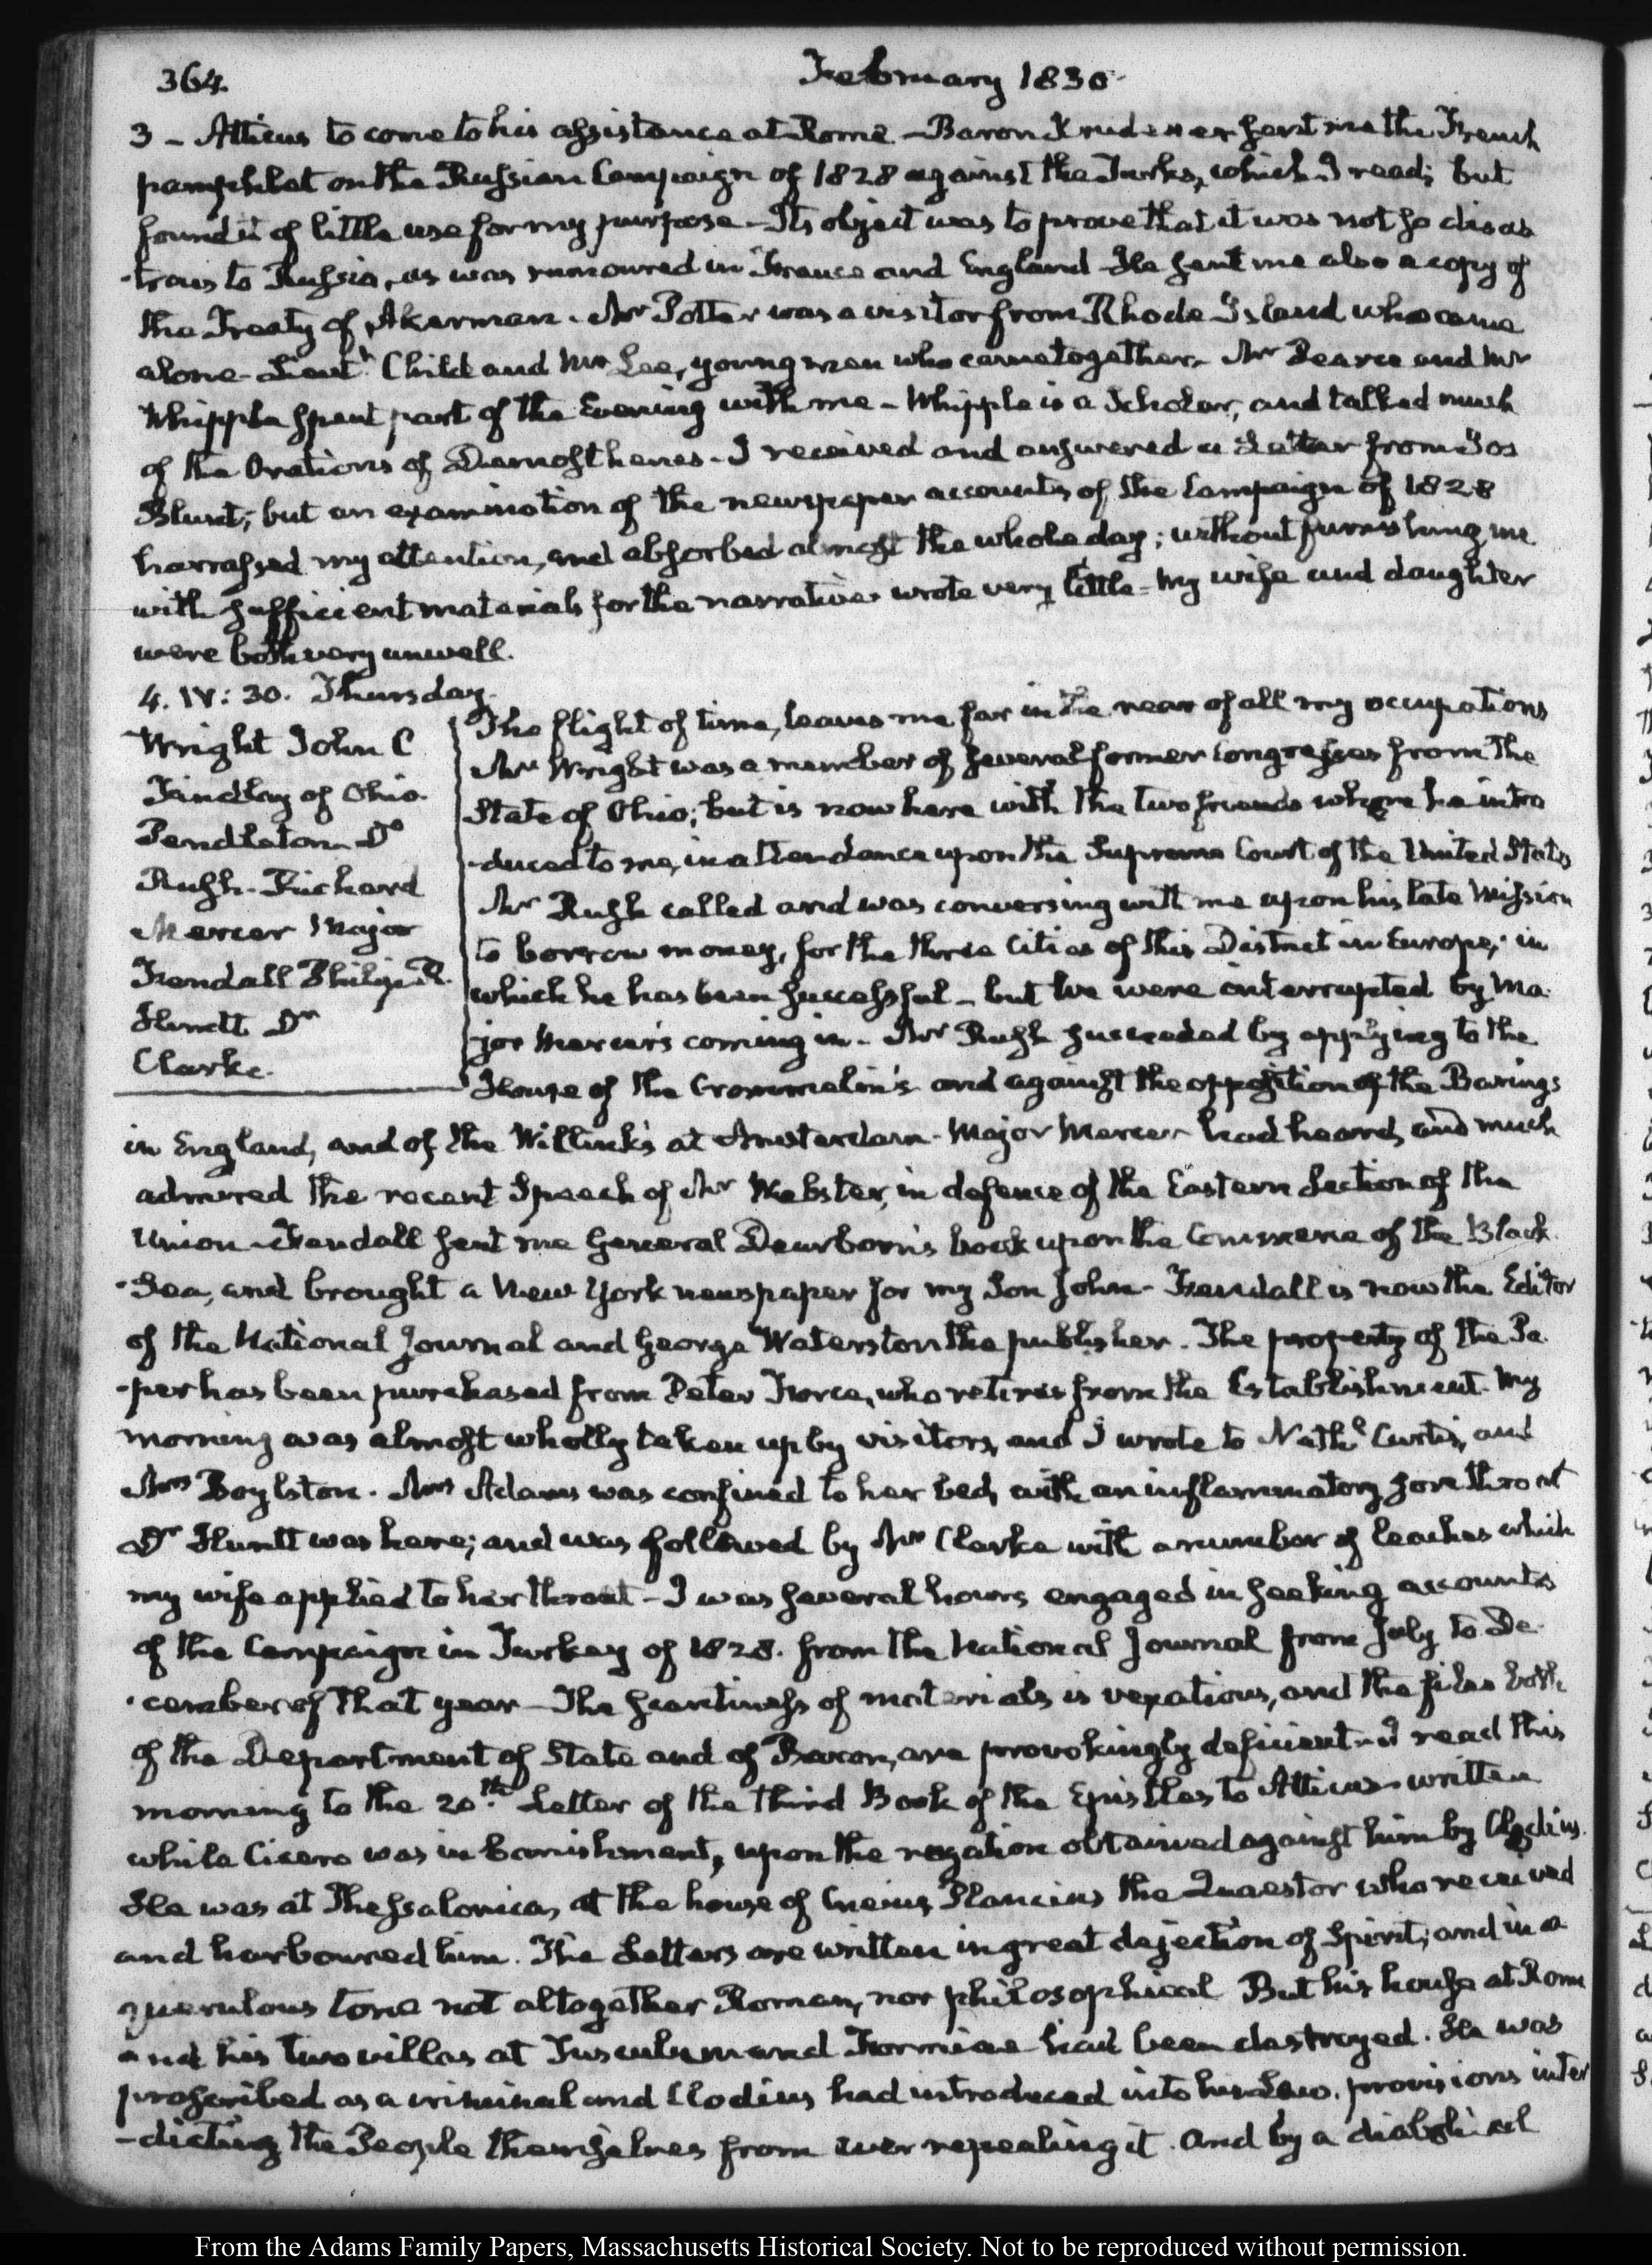 364.
February 1830.
3 - Atticus to come to his assistance at Rome - Baron Krudener sent me the French
pamphlet on the Russian Campaign of 1828 against the Turks, which I read; but
found it of little use for my purpose - Its object was to prove that it was not so disas
-trous to Russia, as was rumoured in France and England - He sent me also a copy of
the Treaty of Akerman. Mr Potter was a visitor from Rhode Island who came
alone - Lieut. Child and Mr Lee, young men who came together. Mr Pearce and Mr
Whipple spent part of the Evening with me - Whipple is a Scholar, and talked much
of the Orations of Demosthenes - I received and answered a Letter from Jos
Blunt; but an examination of the newspaper accounts of the Campaign of 1828
harrassed my attention, and absorbed almost the whole day; without furnishing me
with sufficient materials for the narrative. wrote very little - My wife and daughter
were both very unwell.
4. IV: 30. Thursday.
Wright John C
Findlay of Ohio.
Pendleton Do
Rush - Richard
Mercer Major
Fendall Philip R.
Huntt Dr
Clarke.
The flight of time, leaves me far in the rear of all my occupations
Mr Wright was a member of several former Congresses from the
State of Ohio; but is now here with the two friends whom he intro
-duced to me, in attendance upon the Supreme Court of the United States
Mr Rush called and was conversing with me upon his late Mission
to borrow money, for the three Cities of this District in Europe; in
which he has been successful - but we were interrupted by Ma
jor Mercer's coming in - Mr Rush succeeded by applying to the
House of the Crommelin's and against the opposition of the Barings
in England, and of the Willink's at Amsterdam - Major Mercer had heard, and much
admired the recent Speech of Mr Webster, in defence of the Eastern Section of the
Union - Fendall sent me General Dearborn's book upon the Commerce of the Black
-Sea, and brought a New York newspaper for my Son John - Fendall is now the Editor
of the National Journal and George Waterston the publisher. The property of the Pa
-per has been purchased from Peter Force, who retires from the Establishment. My
morning was almost wholly taken up by visitors, and I wrote to Nathl Curtis, and
Mrs Boylston. Mrs Adams was confined to her bed, with an inflammatory sore throat
Dr Huntt was here; and was followed by Mrs Clarke with a number of leaches which
my wife applied to her throat - I was several hours engaged in seeking accounts
of the Campaign in Turkey of 1828. from the National Journal from July to De
-cember of that year - The scantiness of materials is vexatious, and the files both
of the Department of State and of Bacon, are provokingly deficient - I read this
morning to the 20.th Letter of the third Book of the Epistles to Atticus - written
while Cicero was in banishment, upon the rogation obtained against him by Clodius.
He was at Thessalonica, at the house of Cneius Plancius the Quaestor who received
and harboured him. The Letters are written in great dejection of Spirit; and in a
querulous tone not altogether Roman, nor philosophical But his house at Rome
and his two villas at Tusculum and Formiae had been destroyed. He was
proscribed as a criminal and Clodius had introduced into his Law. provisions inter
-dicting the People themselves from ever repealing it. And by a diabolical
From the Adams Family Papers, Massachusetts Historical Society. Not to be reproduced without permission.